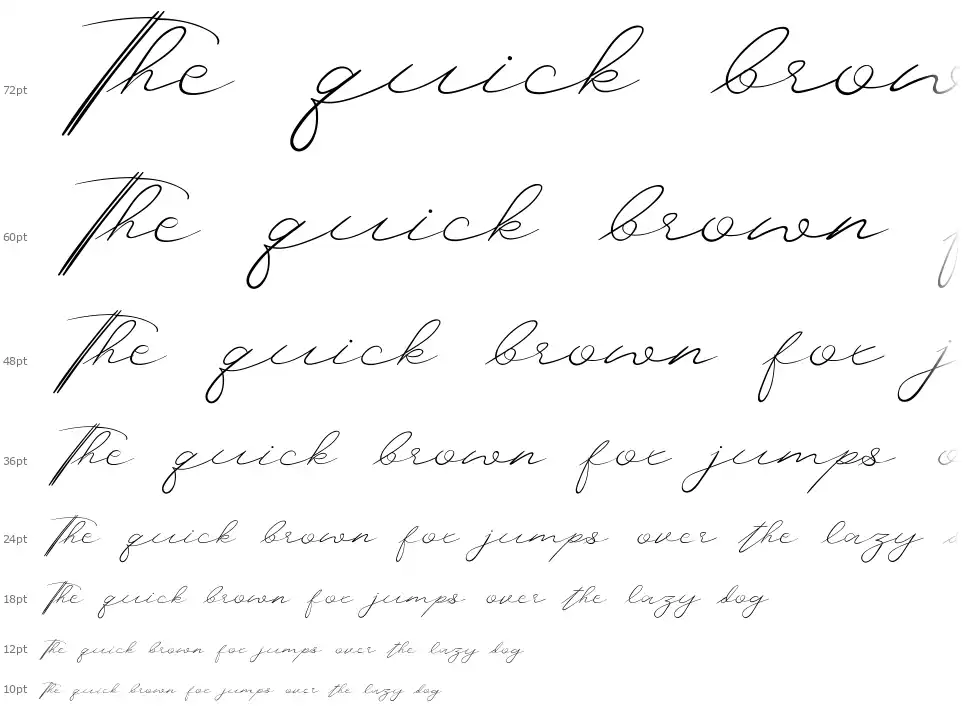 72pt The quick brown
60pt The quick brown
48pt The quick brown fox j
36pt The quick brown fox jumps o
24pt The quick brown fox jumps over the lazy
18pt The quick brown fox jumps over the lazy dog
12pt The quick brown fox jumps over the lazy dog
10pt The quick brown fox jumps over the lazy dog